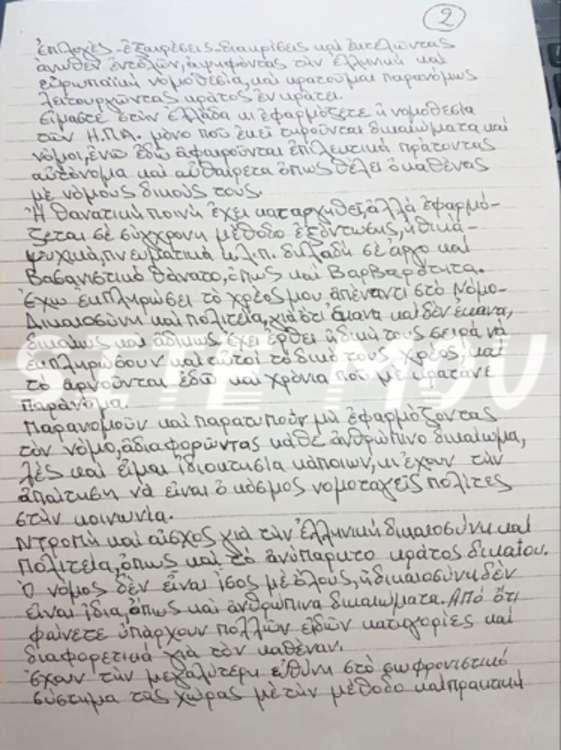 2
ἐπιλογὲς-ἐξαιρέσεις-διακρίσεις καὶ ἐκτελῶντας
ἄνωθεν ἐντολῶν, ἀψηφόντας τὴν ἑλληνικὴ καὶ
εὐρωπαϊκὴ νομοθεσία, καὶ κρατοῦμαι παρανόμως
λειτουργώντας κράτος ἐν κράτει.
Εἴμαστε στὴν Ἑλλάδα κι ἐφαρμόζετε ἡ νομοθεσία
τῶν Η.Π.Α. μόνο ποὺ ἐκεῖ τηροῦνται δικαιώματα καὶ
νόμοι, ἐνῶ ἐδῶ ἀφαιροῦνται ἐπιλεκτικὰ πράτοντας
αὐτόνομα καὶ αὐθαίρετα ὅπως θέλει ὁ καθένας
μὲ νόμους δικούς τους.
Ἡ θανατικὴ ποινὴ ἔχει καταργηθεῖ, ἀλλὰ ἐφαρμό-
ζεται σὲ σύγχρονη μέθοδο ἐξόντωσης, ἠθικά-
ψυχικά, πνευματικὰ κ.λ.π. δηλαδὴ σὲ ἀργὸ καὶ
βασανιστικὸ θάνατο, ὅπως καὶ Βαρβαρότητα.
Ἔχω ἐκπληρώσει τὸ χρέος μου ἀπέναντι στὸ Νόμο-
Δικαιοσύνη καὶ πολιτεία, γιὰ ὅτι ἔκανα καὶ δὲν ἔκανα,
δικαίως καὶ ἀδίκως, ἔχει ἔρθει ἡ δική τους σειρὰ νὰ
ἐκπληρώσουν καὶ αὐτοὶ τὸ δικό τους χρέος, καὶ
τὸ ἀρνοῦνται ἐδῶ καὶ χρόνια ποὺ μὲ κρατᾶνε
παράνομα.
Παρανομοῦν καὶ παρατυποῦν μὴ ἐφαρμόζοντας
τὸν νόμο, ἀδιαφορῶντας κάθε ἀνθρώπινο δικαίωμα,
λὲς καὶ εἶμαι ἰδιοκτησία κάποιων, κι ἔχουν τὴν
ἀπαίτηση νὰ εἶναι ὁ κόσμος νομοταγεῖς πολίτες
στὴν κοινωνία.
Ντροπὴ καὶ αἶσχος γιὰ τὴν ἑλληνικὴ δικαιοσύνη καὶ
Πολιτεία, ὅπως καὶ τὸ ἀνύπαρκτο κράτος δικαίου.
Ὁ νόμος δὲν εἶναι ἴσος μὲ ὅλους, ἡ δικαιοσύνη δὲν
εἶναι ἴδια, ὅπως καὶ ἀνθρώπινα δικαιώματα. Ἀπὸ ὅτι
φαίνετε ὑπάρχουν πολλῶν εἰδῶν κατηγορίες καὶ
διαφορετικὰ γιὰ τὸν καθέναν.
Ἔχουν τὴν μεγαλύτερη εὐθύνη στὸ σωφρονιστικὸ
σύστημα τῆς χώρας μὲ τὴν μέθοδο καὶ πρακτικὴ